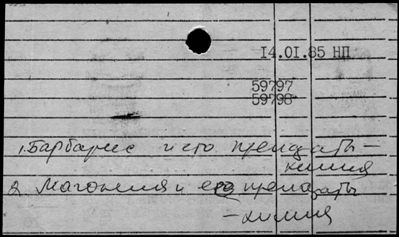 14.01.85 НП
59797
59798
1. Барбарис и его препараты –
химия
2. Магония и его препараты
– химия